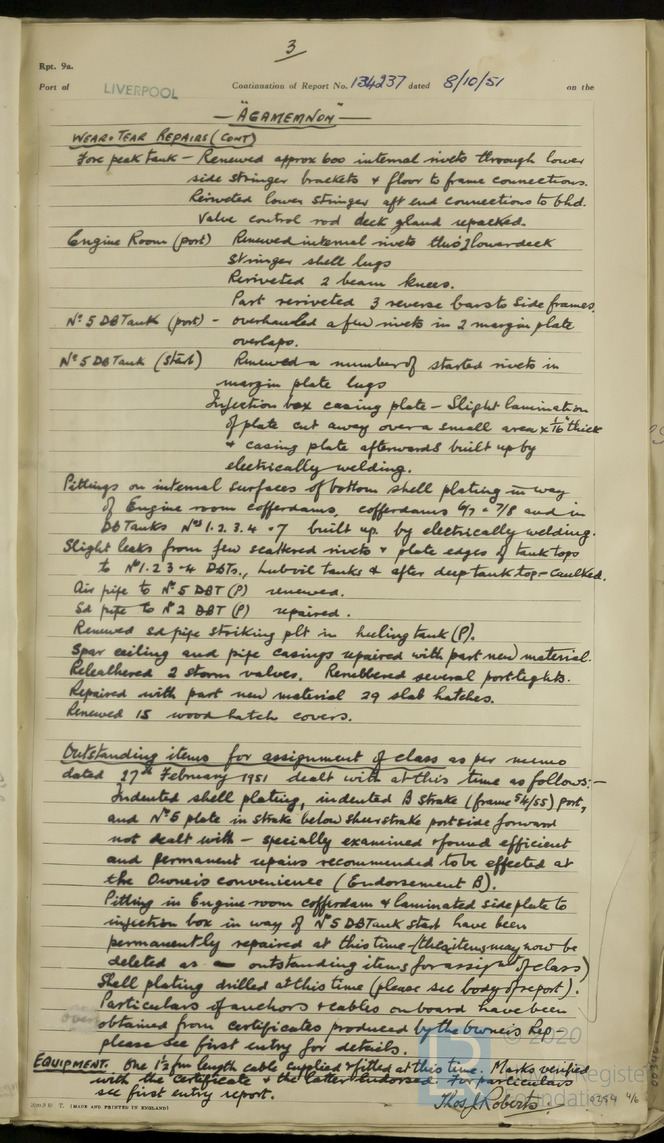 3
Rpt. 9a.
Port of LIVERPOOL Continuation of Report No. 134237 dated 8/10/51 on the
— "AGAMEMNON" —
WEAR & TEAR REPAIRS (CONT)
Fore peak tank - Renewed approx 600 internal rivets through lower
side stringer brackets & floor to frame connections.
Reriveted lower stringer aft end connections to bhd.
Valve control rod deck gland repacked.
Engine Room (port) Renewed internal rivets thro' lower deck
stringer shell lugs
Reriveted 2 beam knees.
Part reriveted 3 reverse bars to side frames.
Nº 5 DB Tank (port) - overhauled a few rivets in 2 margin plate
overlaps.
Nº 5 DB Tank (starb) Renewed a number of started rivets in
margin plate lugs
Injection box casing plate - Slight lamination
of plate cut away over a small area x 1/16" thick
& casing plate afterwards built up by
electrically welding.
Pittings on internal surfaces of bottom shell plating in way
of Engine room cofferdams, cofferdams 6/7 & 7/8 and in
DB Tanks Nºs 1.2.3.4 & 7 built up by electrically welding.
Slight leaks from few scattered rivets & plate edges of tank tops
to Nº 1.2.3.4 DBTs., lub oil tanks & after deep tank top - caulked.
Air pipe to Nº 5 DBT (P) renewed.
Sd pipe to Nº 2 DBT (P) repaired.
Renewed sd pipe striking plt in heeling tank (P).
Spar ceiling and pipe casings repaired with part new material.
Releathered 2 storm valves. Rerubbered several portlights.
Repaired with part new material 29 slab hatches.
Renewed 15 wood hatch covers.
Outstanding items for assignment of class as per memo
dated 27th February 1951 dealt with at this time as follows:-
Indented shell plating, indented B strake (frame 54/55) port,
and Nº 5 plate in strake below sheerstrake portside forward
not dealt with - specially examined & found efficient
and permanent repairs recommended to be effected at
the Owner's convenience (Endorsement B).
Pitting in Engine room cofferdam & laminated side plate to
injection box in way of Nº 5 DB Tank starb have been
permanently repaired at this time (these items may now be
deleted as outstanding items for assigt of class)
Shell plating drilled at this time (please see body of report).
Particulars of anchors & cables on board have been
obtained from certificates produced by the Owner's Rep -
please see first entry for details.
EQUIPMENT. One length cable supplied & fitted at this time. Marks verified
with the certificate & the latter endorsed. For particulars
see first entry report.
Thos J. Roberts.
T. (MADE AND PRINTED IN ENGLAND)
© 2020
Register
Foundation
0294 4/6